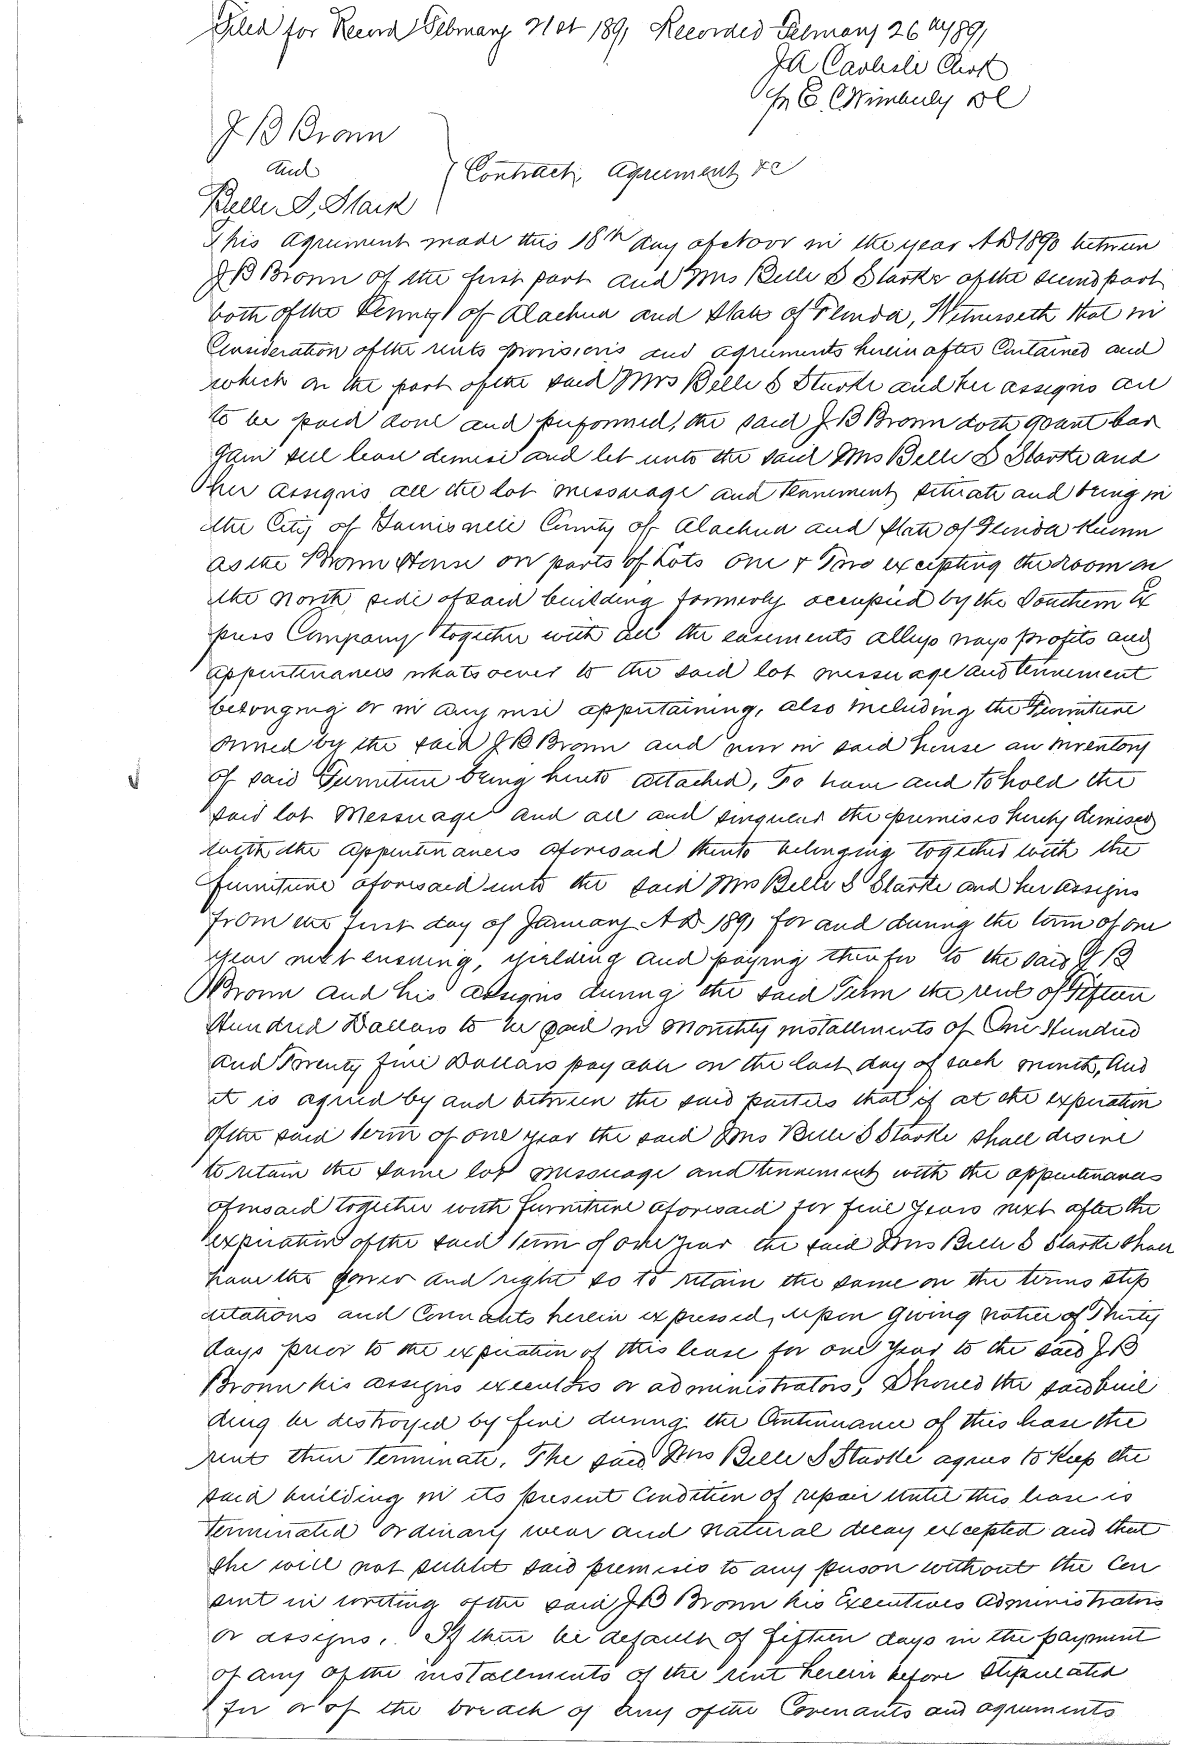 Filed for Record February 21st 1891 Recorded February 26th 1891
J A Carlisle Clerk
Pr E. C Wimberly DC
J B Brown
and
Belle S, Stark
Contract, Agreement &c
This agreement made this 18th day of Novr in the year AD 1890 between
J B Brown of the first part and Mrs Belle S Starke of the second part
both of the County of Alachua and State of Florida, Witnesseth that in
Consideration of the rents provisions and agreements herein after Contained and
which on the part of the said Mrs Belle S Starke and her assigns are
to be paid done and performed, the said J B Brown doth grant bar
gain sell lease demise and let unto the said Mrs Belle S Starke and
her assigns all the lot messuage and tennement, situate and being in
the City of Gainisville County of Alachua and State of Florida Known
as the Brown House on parts of Lots One & Two excepting the room on
the north side of said building formerly occupied by the Southern Ex
press Company together with all the easements alleys ways profits and
appurtenances whatsoever to the said lot messuage and tennement
belonging or in any wise appurtaining, also including the Furniture
owned by the said J B Brown and now in said house an inventory
of said Furniture being hereto attached, To have and to hold the
said lot Messuage and all and singular the premises hereby demised
with the appurtenances aforesaid thereto belonging together with the
furniture aforesaid unto the said Mrs Belle S Starke and her assigns
from the first day of January A D 1891 for and during the term of one
year next ensuing, yielding and paying therefor to the said J B
Brown and his assigns during the said Term the rent of Fifteen
Hundred Dollars to be paid in Monthly installments of One Hundred
and Twenty five Dollars payable on the last day of each month, And
it is agreed by and between the said parties that if at the expiration
of the said term of one year the said Mrs Belle S Starke shall desire
to retain the same lot messuage and tennement with the appurtenances
aforesaid together with furniture aforesaid for five years next after the
expiration of the said Term of one year the said Mrs Belle S Starke shall
have the power and right so to retain the same on the terms stip
ulations and Covenants herein expressed, upon giving notice of Thirty
days prior to the expiration of this lease for one year to the said J B
Brown his assigns executors or administrators, Should the said buil
ding be destroyed by fire during the Continuance of this lease the
rent then terminate. The said Mrs Belle S Starke agrees to Keep the
said building in its present Condition of repair until this lease is
terminated ordinary wear and natural decay excepted and that
she will not sublet said premises to any person without the Con
sent in writing of the said J B Brown his Executives administrators
or assigns. If there be default of fifteen days in the payment
of any of the installments of the rent herein before stipulated
for or of the breach of any of the Covenants and agreements